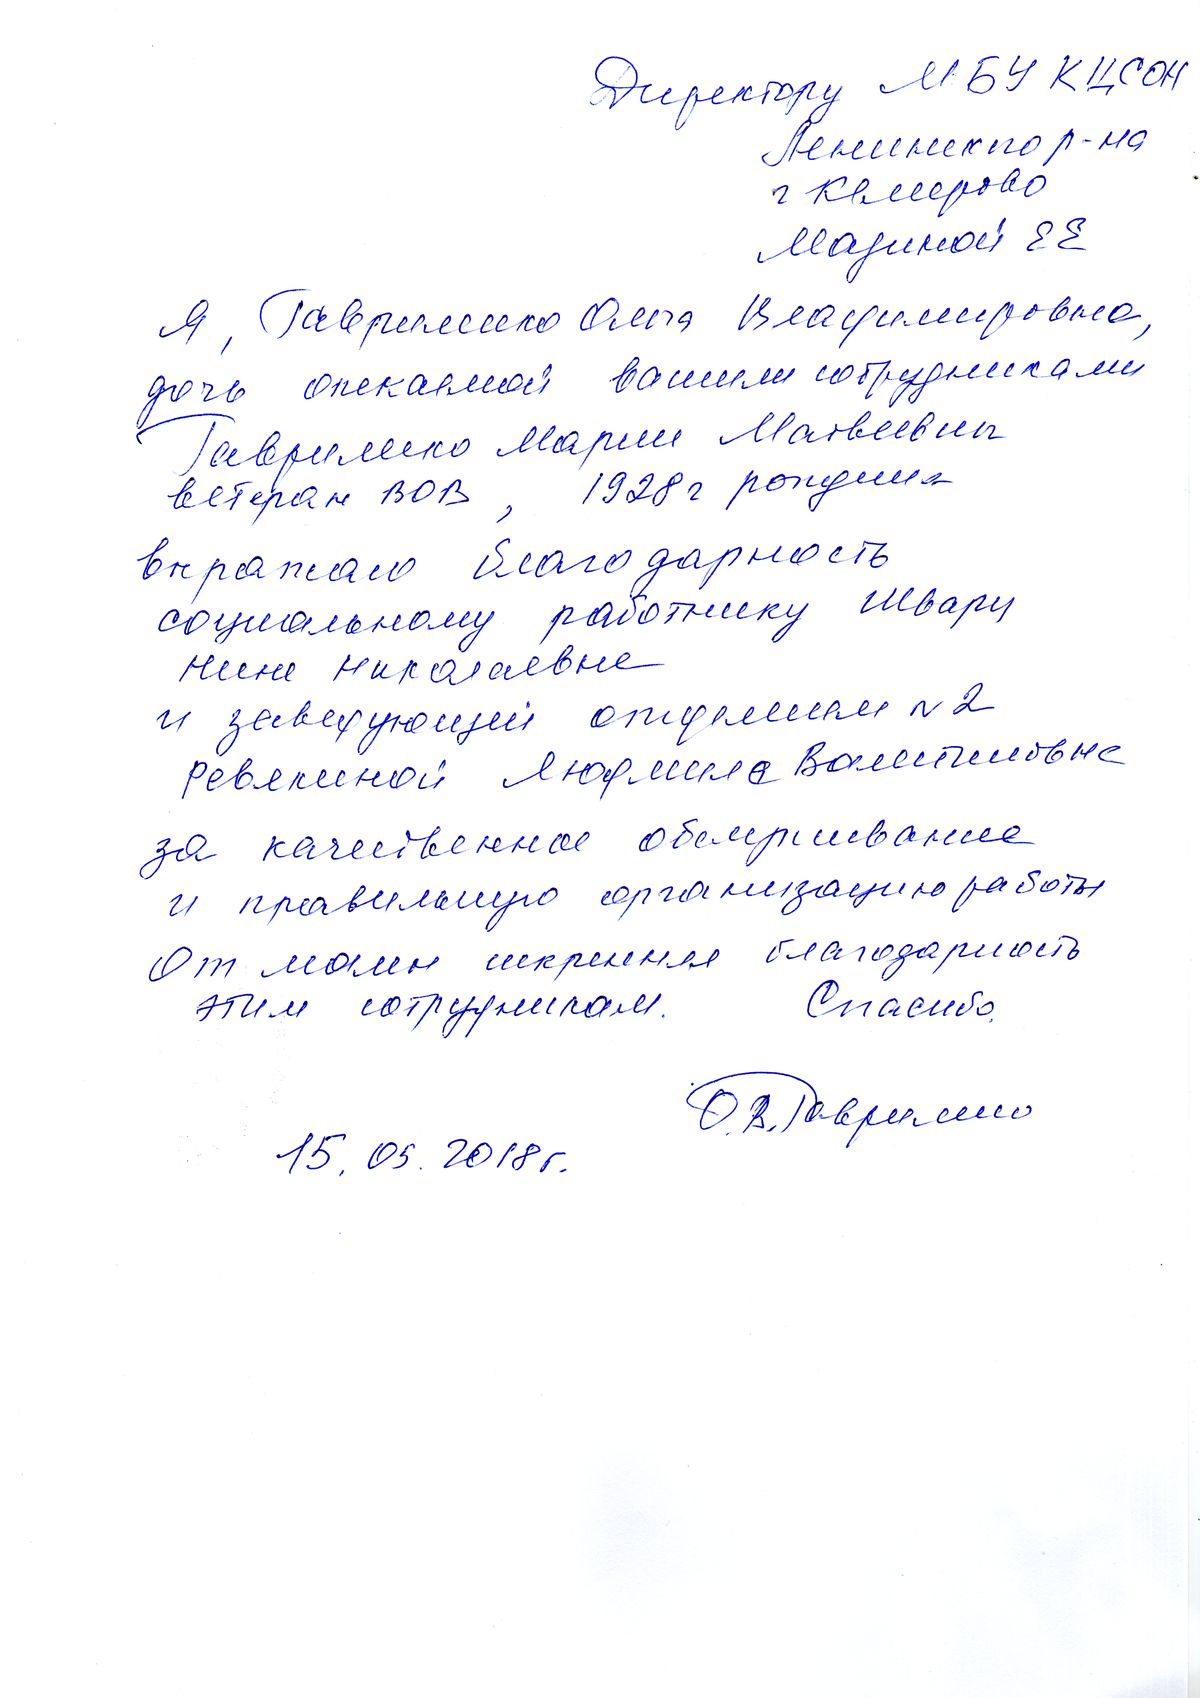 Директору МБУ КЦСОН
Ленинского р-на
г Кемерово
Мазиной ЕЕ
Я, Гавриленко Ольга Владимировна,
дочь опекаемой вашими сотрудниками
Гавриленко Марии Матвеевны
ветеран ВОВ, 1928г рождения
выражаю благодарность
социальному работнику Шварц
Нине Николаевне
и заведующей отделением №2
Ревякиной Людмиле Валентиновне
за качественное обслуживание
и правильную организацию работы
От мамы искренняя благодарность
этим сотрудникам. Спасибо.
О.В.Гавриленко
15.05.2018г.